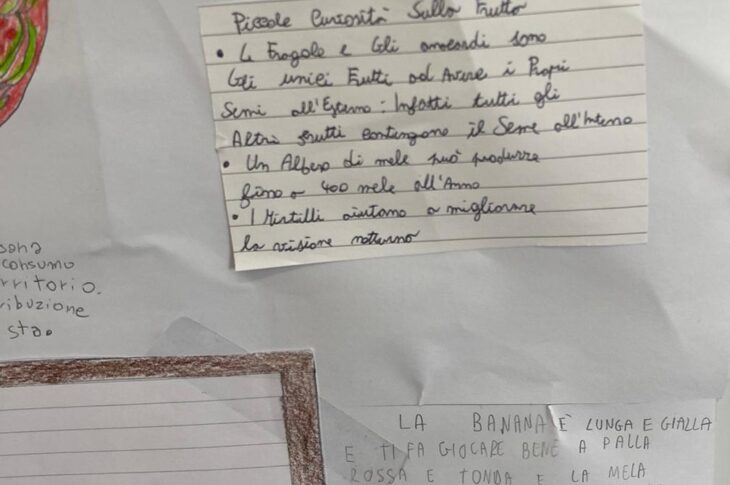 Piccole Curiosità Sulla Frutta
• Le Fragole e Gli anacardi sono
Gli unici Frutti ad Avere i Propri
Semi all'Esterno: Infatti tutti gli
Altri frutti contengono il Seme all'Interno
• Un Albero di mele può produrre
fino a 400 mele all'Anno
• I Mirtilli aiutano a migliorare
la visione notturna
consumo
rritorio.
ribuzione
sta.
LA BANANA È LUNGA E GIALLA
E TI FA GIOCARE BENE A PALLA
ROSSA E TONDA E LA MELA